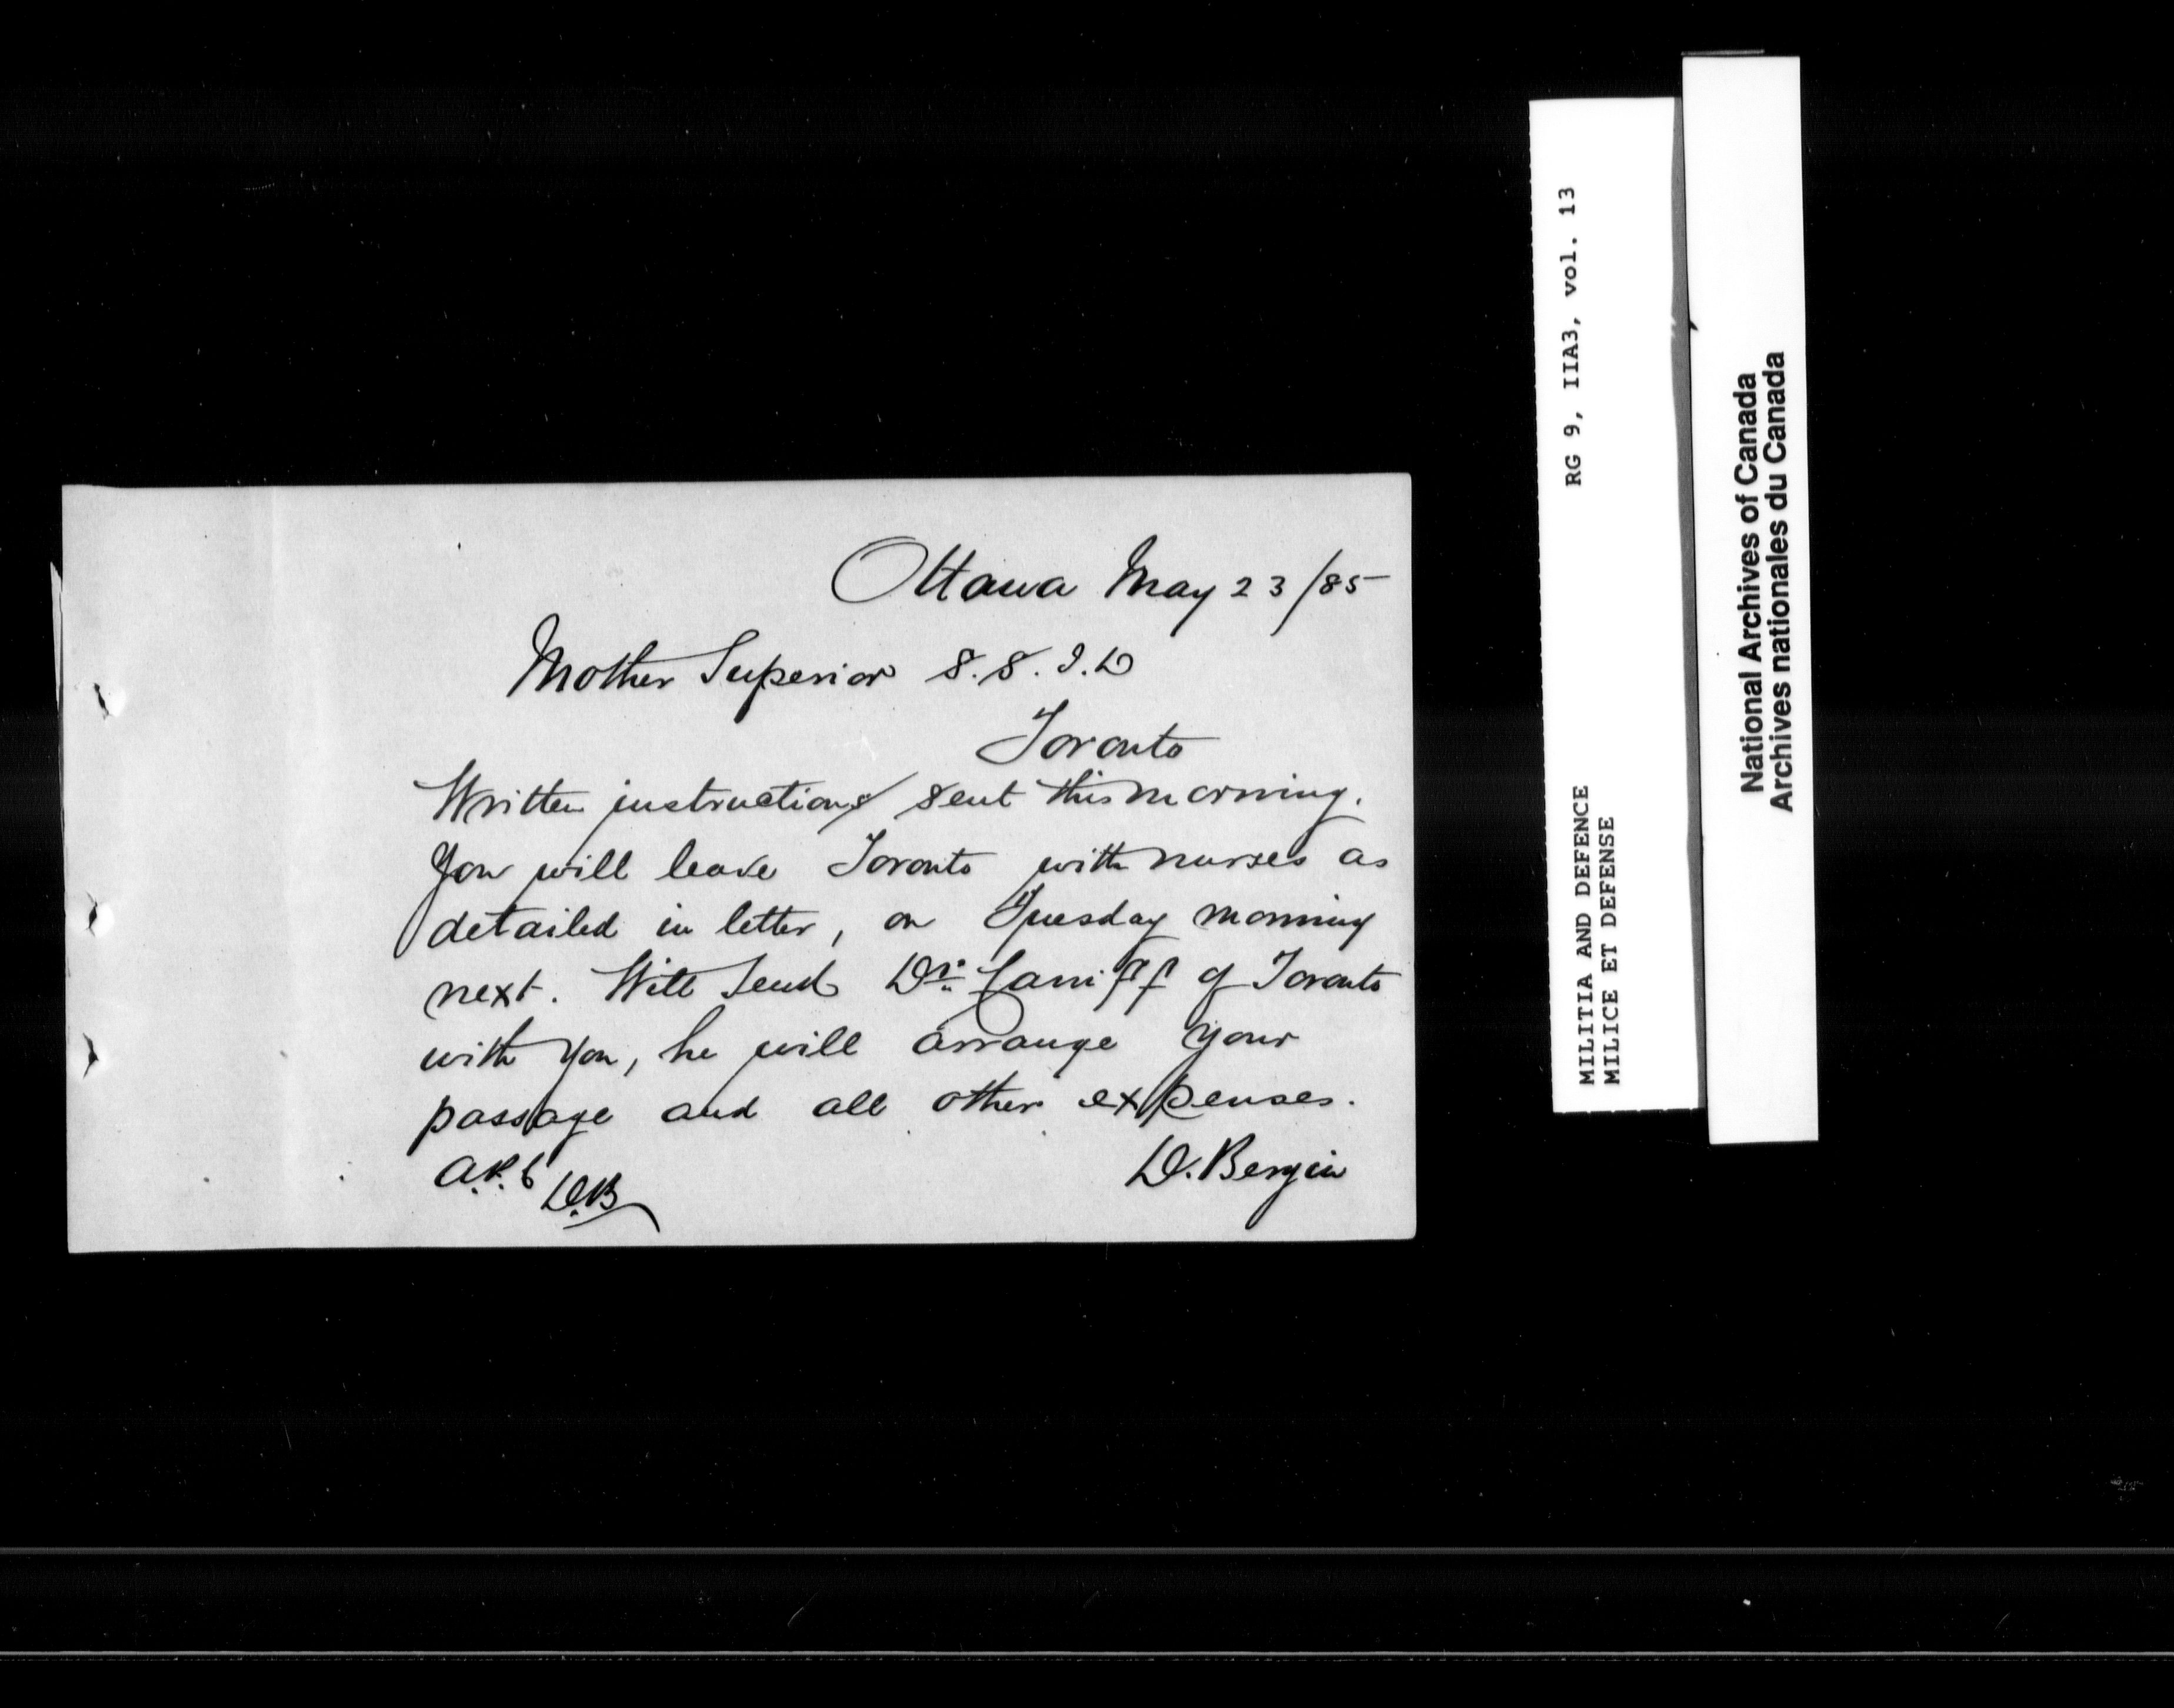 Ottawa May 23/85
Mother Superior S.S.J.D
Toronto
Written instructions sent this morning.
You will leave Toronto with nurses as
detailed in letter, on Tuesday morning
next. Will send Dr. Canniff of Toronto
with you, he will arrange your
passage and all other expenses.
D. Bergin
D.B
RG 9, IIA3, vol. 13
MILITIA AND DEFENCE
MILICE ET DEFENSE
National Archives of Canada
Archives nationales du Canada